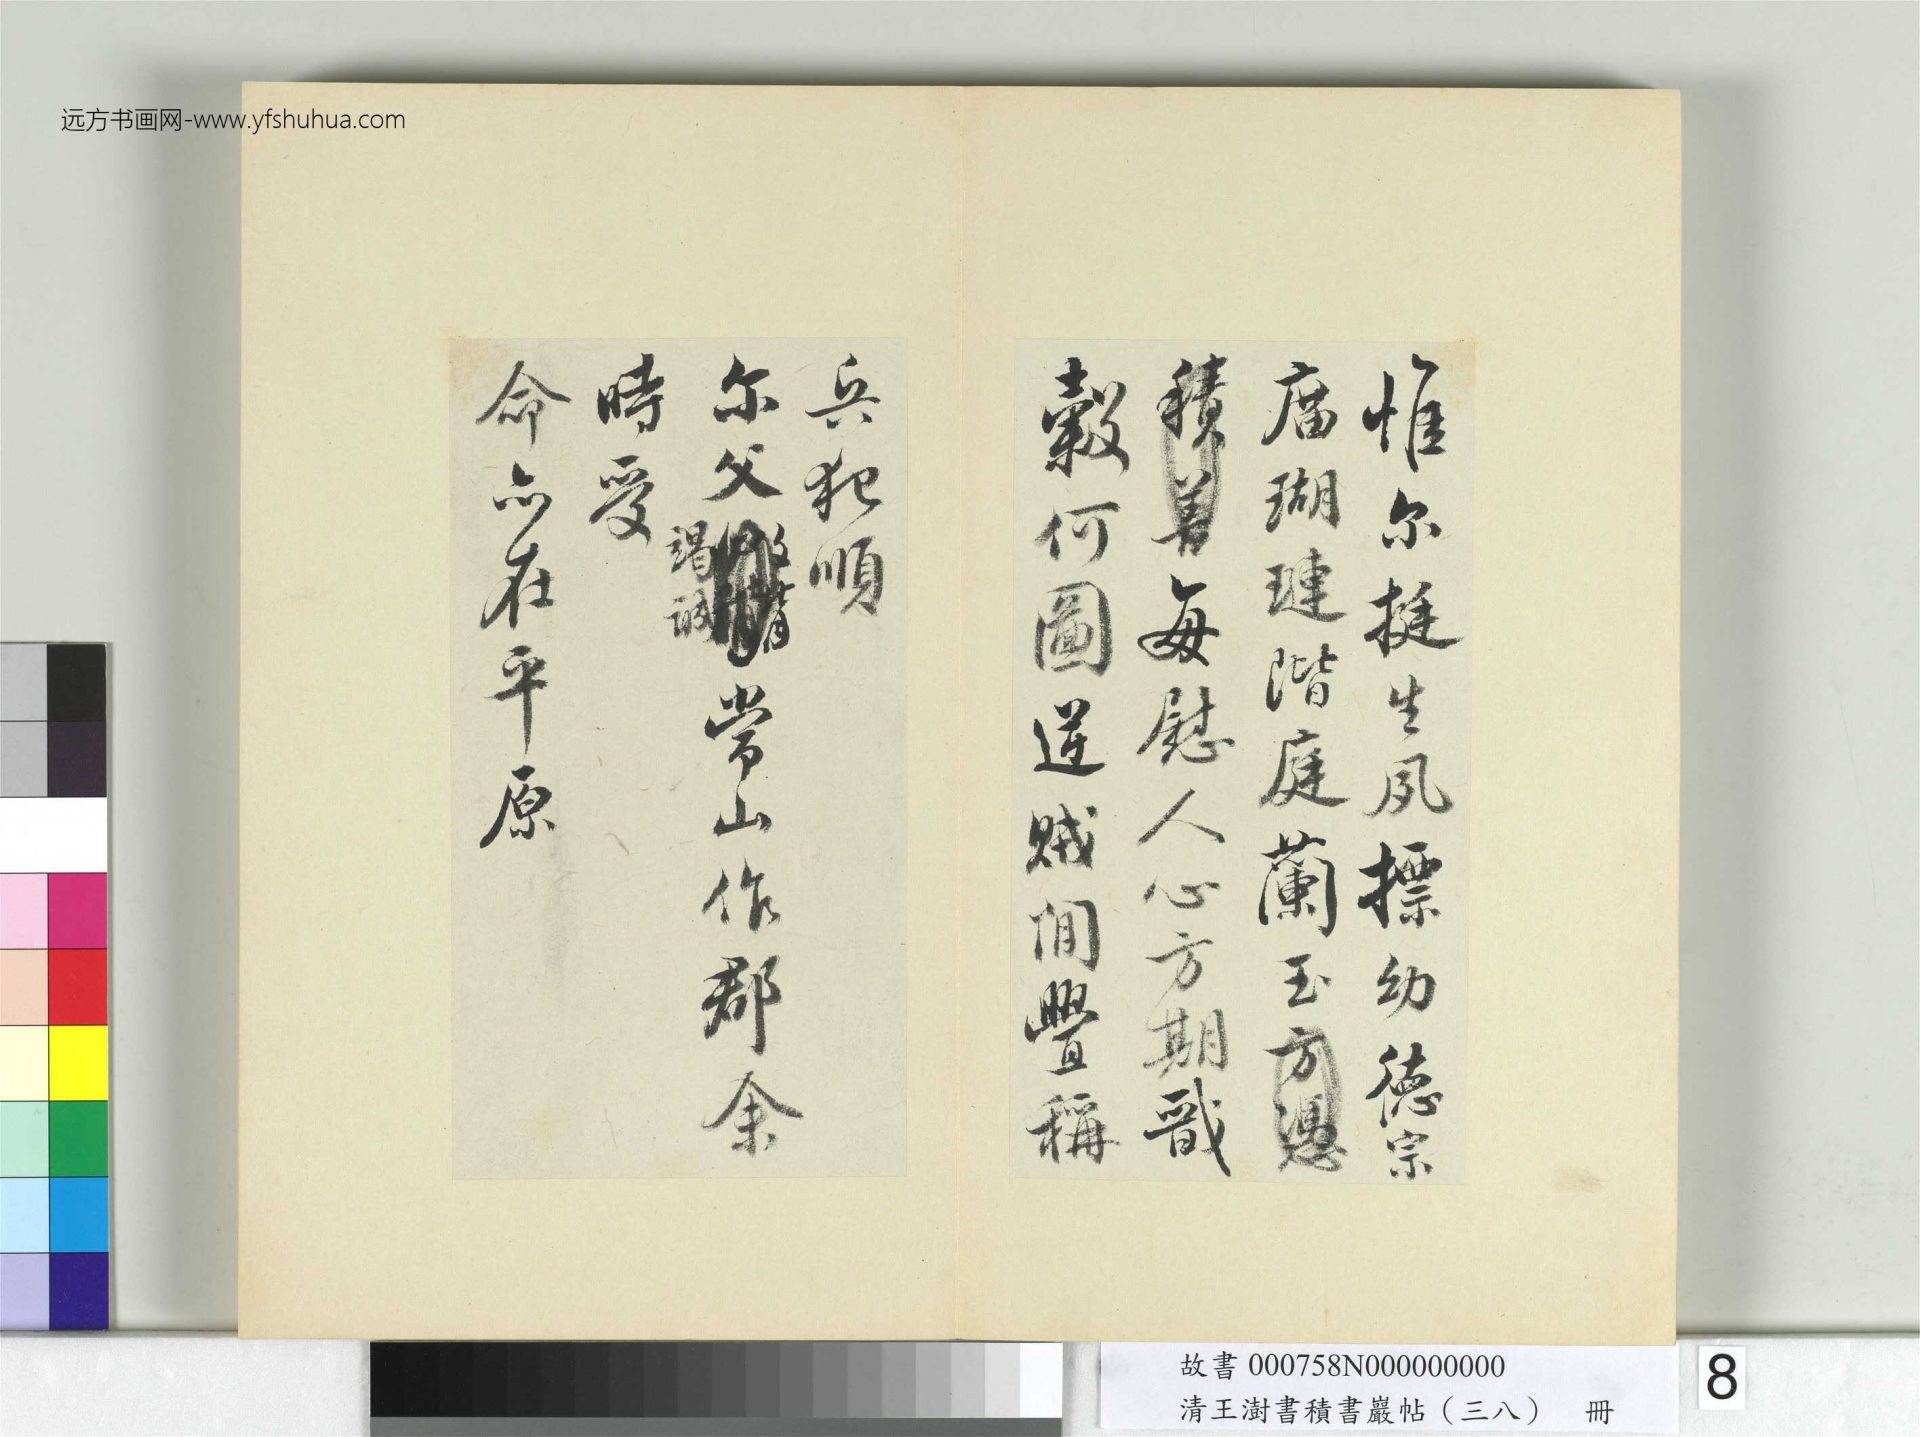 远方书画网-www.yfshuhua.com
惟尔挺生夙標幼德宗
廟瑚璉階庭蘭玉方憑
積善每慰人心方期戩
穀何圖逆賊間舋稱
兵犯順
尔父
竭誠
常山作郡余
時受
命亦在平原
故書000758N000000000
清王澍書積書巖帖（三八） 冊
8